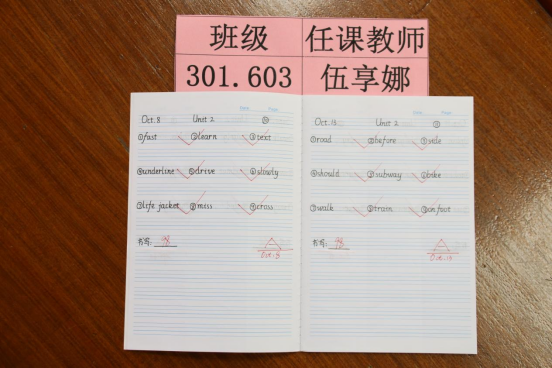 班级 任课教师
301.603 伍享娜
Oct.8 Unit 2
①fast ②learn ③text
④underline ⑤drive ⑥slowly
⑦life jacket ⑧miss ⑨cross
书写:
Oct.8
Oct.15 Unit 2
①road ②before ③side
④should ⑤subway ⑥bike
⑦walk ⑧train ⑨on foot
书写: